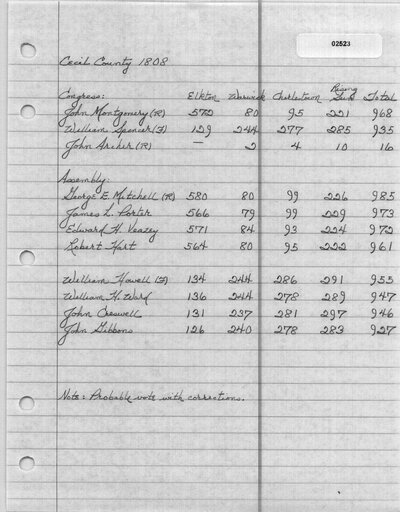 02523
Cecil County 1808
Congress: Elkton Warwick Charlestown Rising Sun Total
John Montgomery (R) 572 80 95 221 968
William Spencer (F) 129 244 277 285 935
John Archer (R) — 2 4 10 16
Assembly:
George E. Mitchell (R) 580 80 99 226 985
James L. Porter 566 79 99 229 973
Edward H. Veazey 571 84 93 224 972
Robert Hart 564 80 95 222 961
William Howell (F) 134 244 286 291 955
William H. Ward 136 244 278 289 947
John Creswell 131 237 281 297 946
John Gibbons 126 240 278 283 927
Note: Probable vote with corrections.